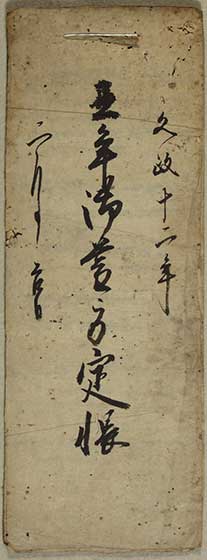 文政十二年
丑年御方定帳
月吉日